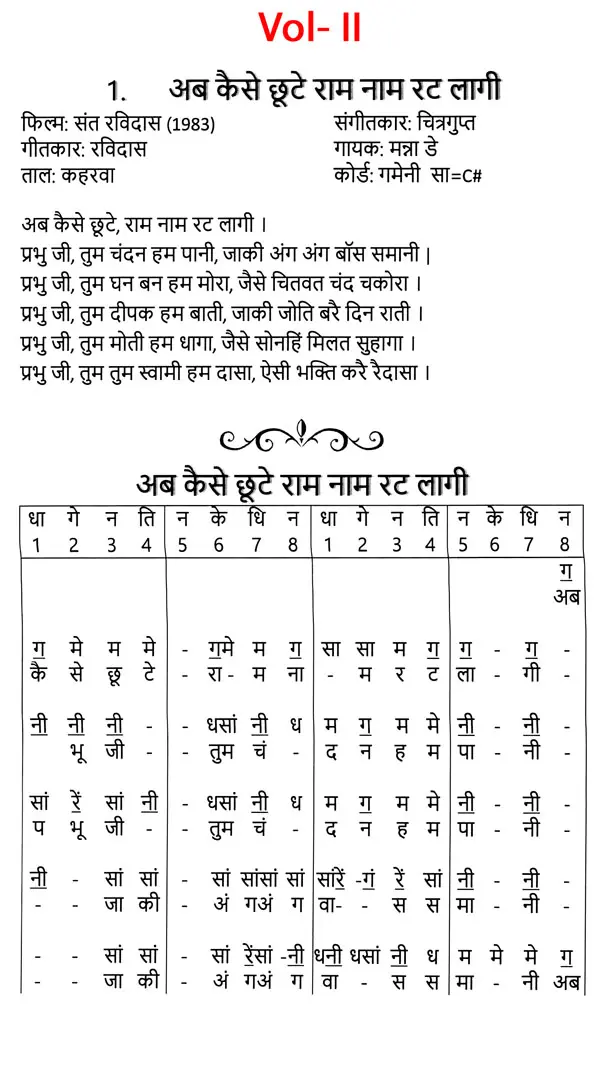 Vol- II
1. अब कैसे छूटे राम नाम रट लागी
फिल्म: संत रविदास (1983) संगीतकार: चित्रगुप्त
गीतकार: रविदास गायक: मन्ना डे
ताल: कहरवा कोर्ड: गमेनी सा=C#
अब कैसे छूटे, राम नाम रट लागी ।
प्रभु जी, तुम चंदन हम पानी, जाकी अंग अंग बॉस समानी |
प्रभु जी, तुम घन बन हम मोरा, जैसे चितवत चंद चकोरा ।
प्रभु जी, तुम दीपक हम बाती, जाकी जोति बरै दिन राती ।
प्रभु जी, तुम मोती हम धागा, जैसे सोनहिं मिलत सुहागा ।
प्रभु जी, तुम तुम स्वामी हम दासा, ऐसी भक्ति करै रैदासा ।
अब कैसे छूटे राम नाम रट लागी
धा गे न ति न के धि न धा गे न ति न के धि न
1 2 3 4 5 6 7 8 1 2 3 4 5 6 7 8
ग॒
अब
ग॒ मे म मे - ग॒मे म ग॒ सा सा म ग॒ ग॒ - ग॒ -
कै से छू टे - रा - म ना - म र ट ला - गी -
नी॒ नी॒ नी॒ - - धसां नी॒ ध म ग॒ म मे नी॒ - नी॒ -
भू जी - - तुम चं - द न ह म पा - नी -
सां रें॒ सां नी॒ - धसां नी॒ ध म ग॒ म मे नी॒ - नी॒ -
प भू जी - - तुम चं - द न ह म पा - नी -
नी॒ - सां सां - सां सांसां सां सांरें॒ -गं॒ रें॒ सां नी॒ - नी॒ -
- - जा की - अं गअं ग वा- - स स मा - नी -
- - सां सां - सां रें॒सां -नी॒ धनी॒ धसां नी॒ ध म मे मे ग॒
- - जा की - अं गअं ग वा - स स मा - नी अब